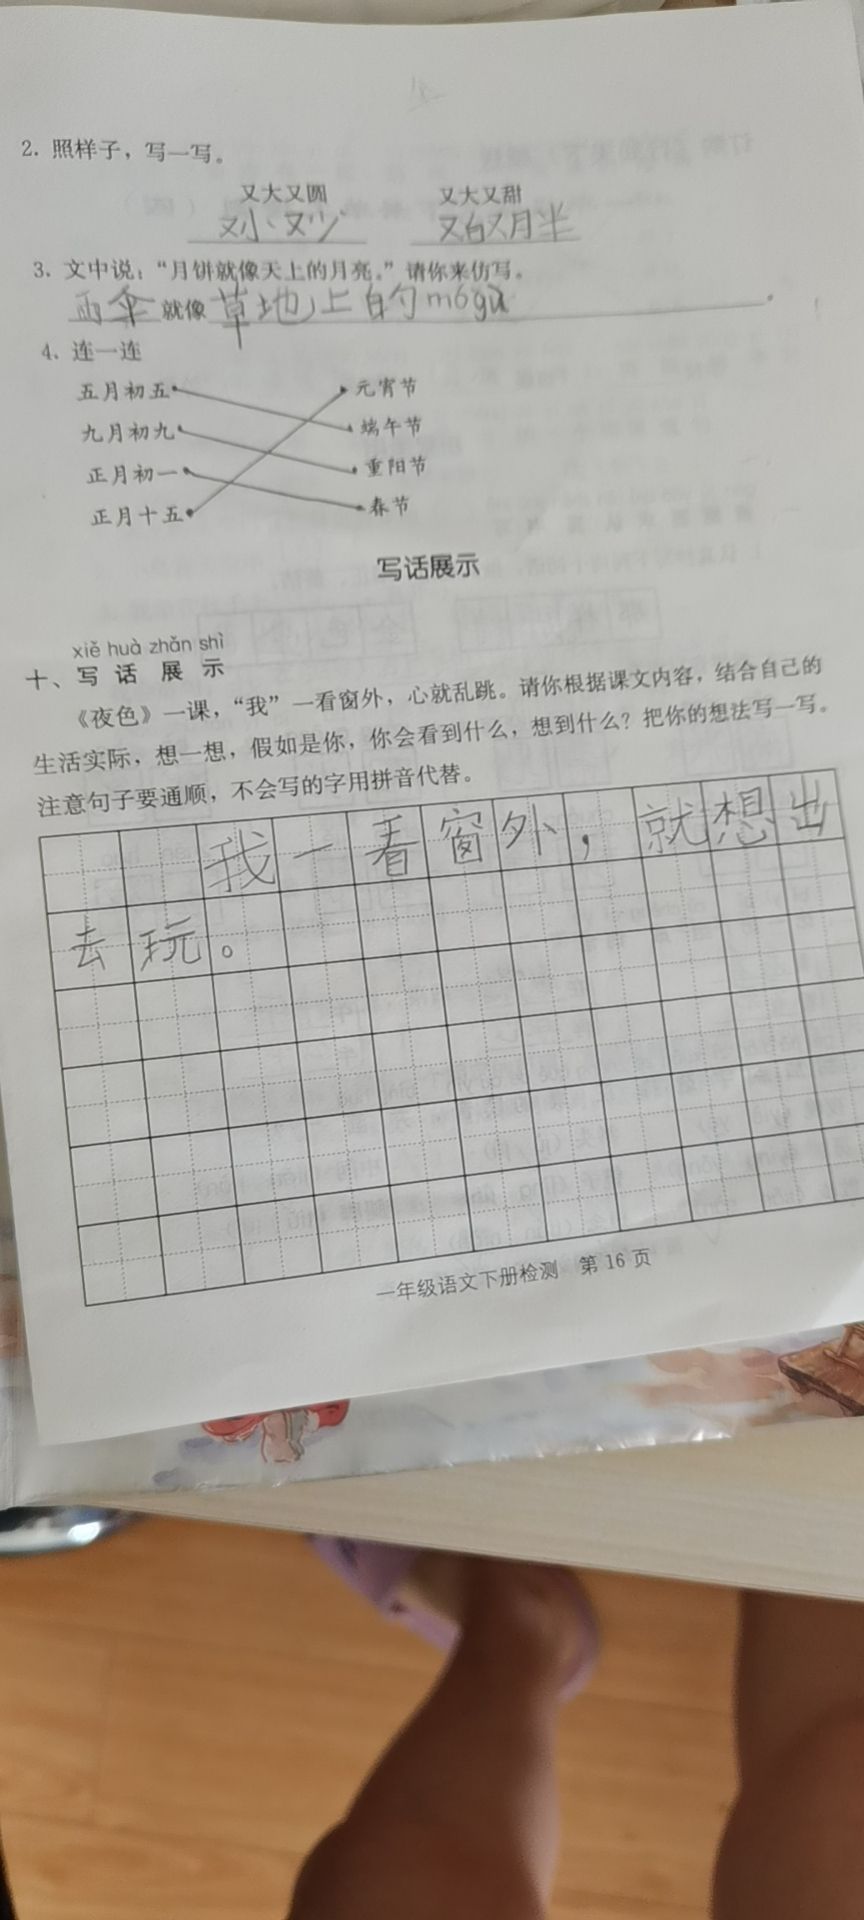 2. 照样子，写一写。
又大又圆 又大又甜
又小又少 又白又胖
3. 文中说：“月饼就像天上的月亮。”请你来仿写。
雨伞就像草地上的mógū。
4. 连一连
五月初五 元宵节
九月初九 端午节
正月初一 重阳节
正月十五 春节
写话展示
xiě huà zhǎn shì
十、写 话 展 示
《夜色》一课，“我”一看窗外，心就乱跳。请你根据课文内容，结合自己的
生活实际，想一想，假如是你，你会看到什么，想到什么？把你的想法写一写。
注意句子要通顺，不会写的字用拼音代替。
我一看窗外，就想出
去玩。
一年级语文下册检测 第 16 页